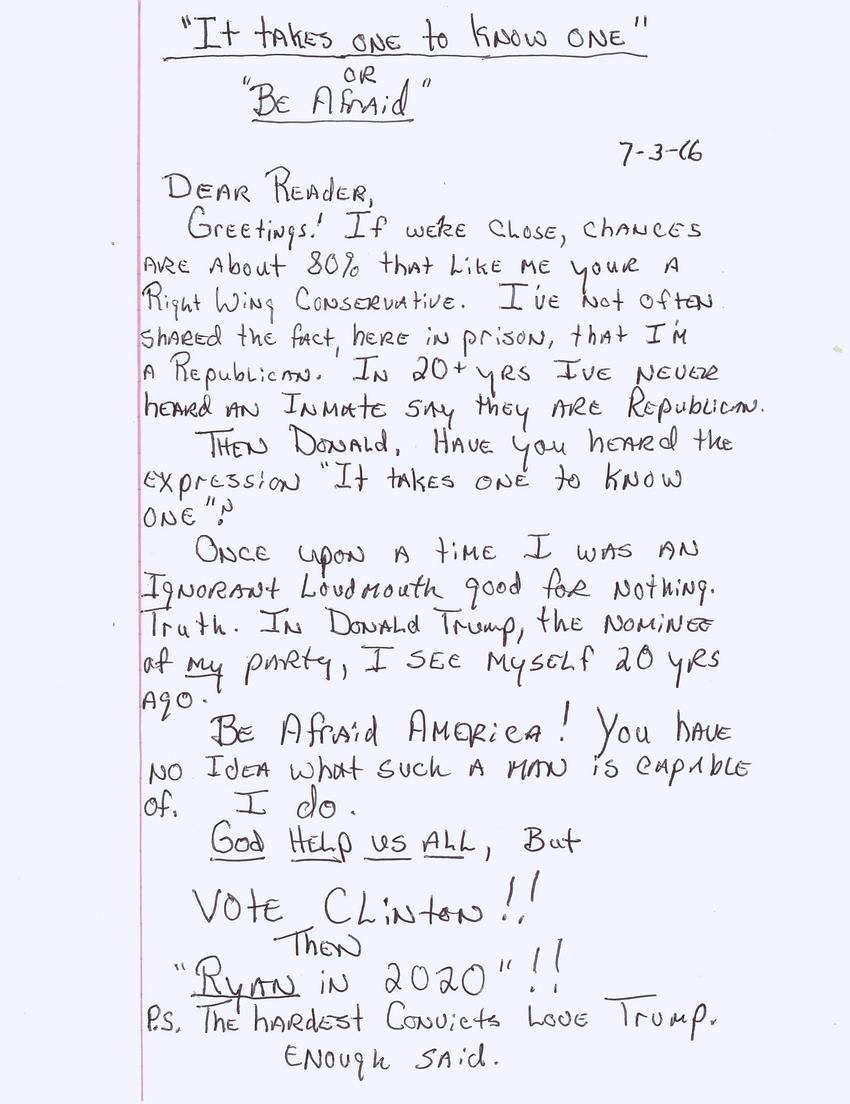 "It takes one to know one"
or
"Be Afraid"
7-3-16
Dear Reader,
Greetings! If we're close, chances
are about 80% that like me your a
Right Wing Conservative. I've not often
shared the fact, here in prison, that I'm
a Republican. In 20+ yrs I've never
heard an inmate say they are Republican.
Then Donald, Have you heard the
expression "It takes one to know
one"?
Once upon a time I was an
Ignorant Loudmouth good for nothing.
Truth. In Donald Trump, the nominee
of my party, I see myself 20 yrs
ago.
Be Afraid America! You have
no idea what such a man is capable
of. I do.
God Help us all, But
Vote Clinton!!
Then
"Ryan in 2020"!!
P.S. The hardest Convicts love Trump.
Enough said.